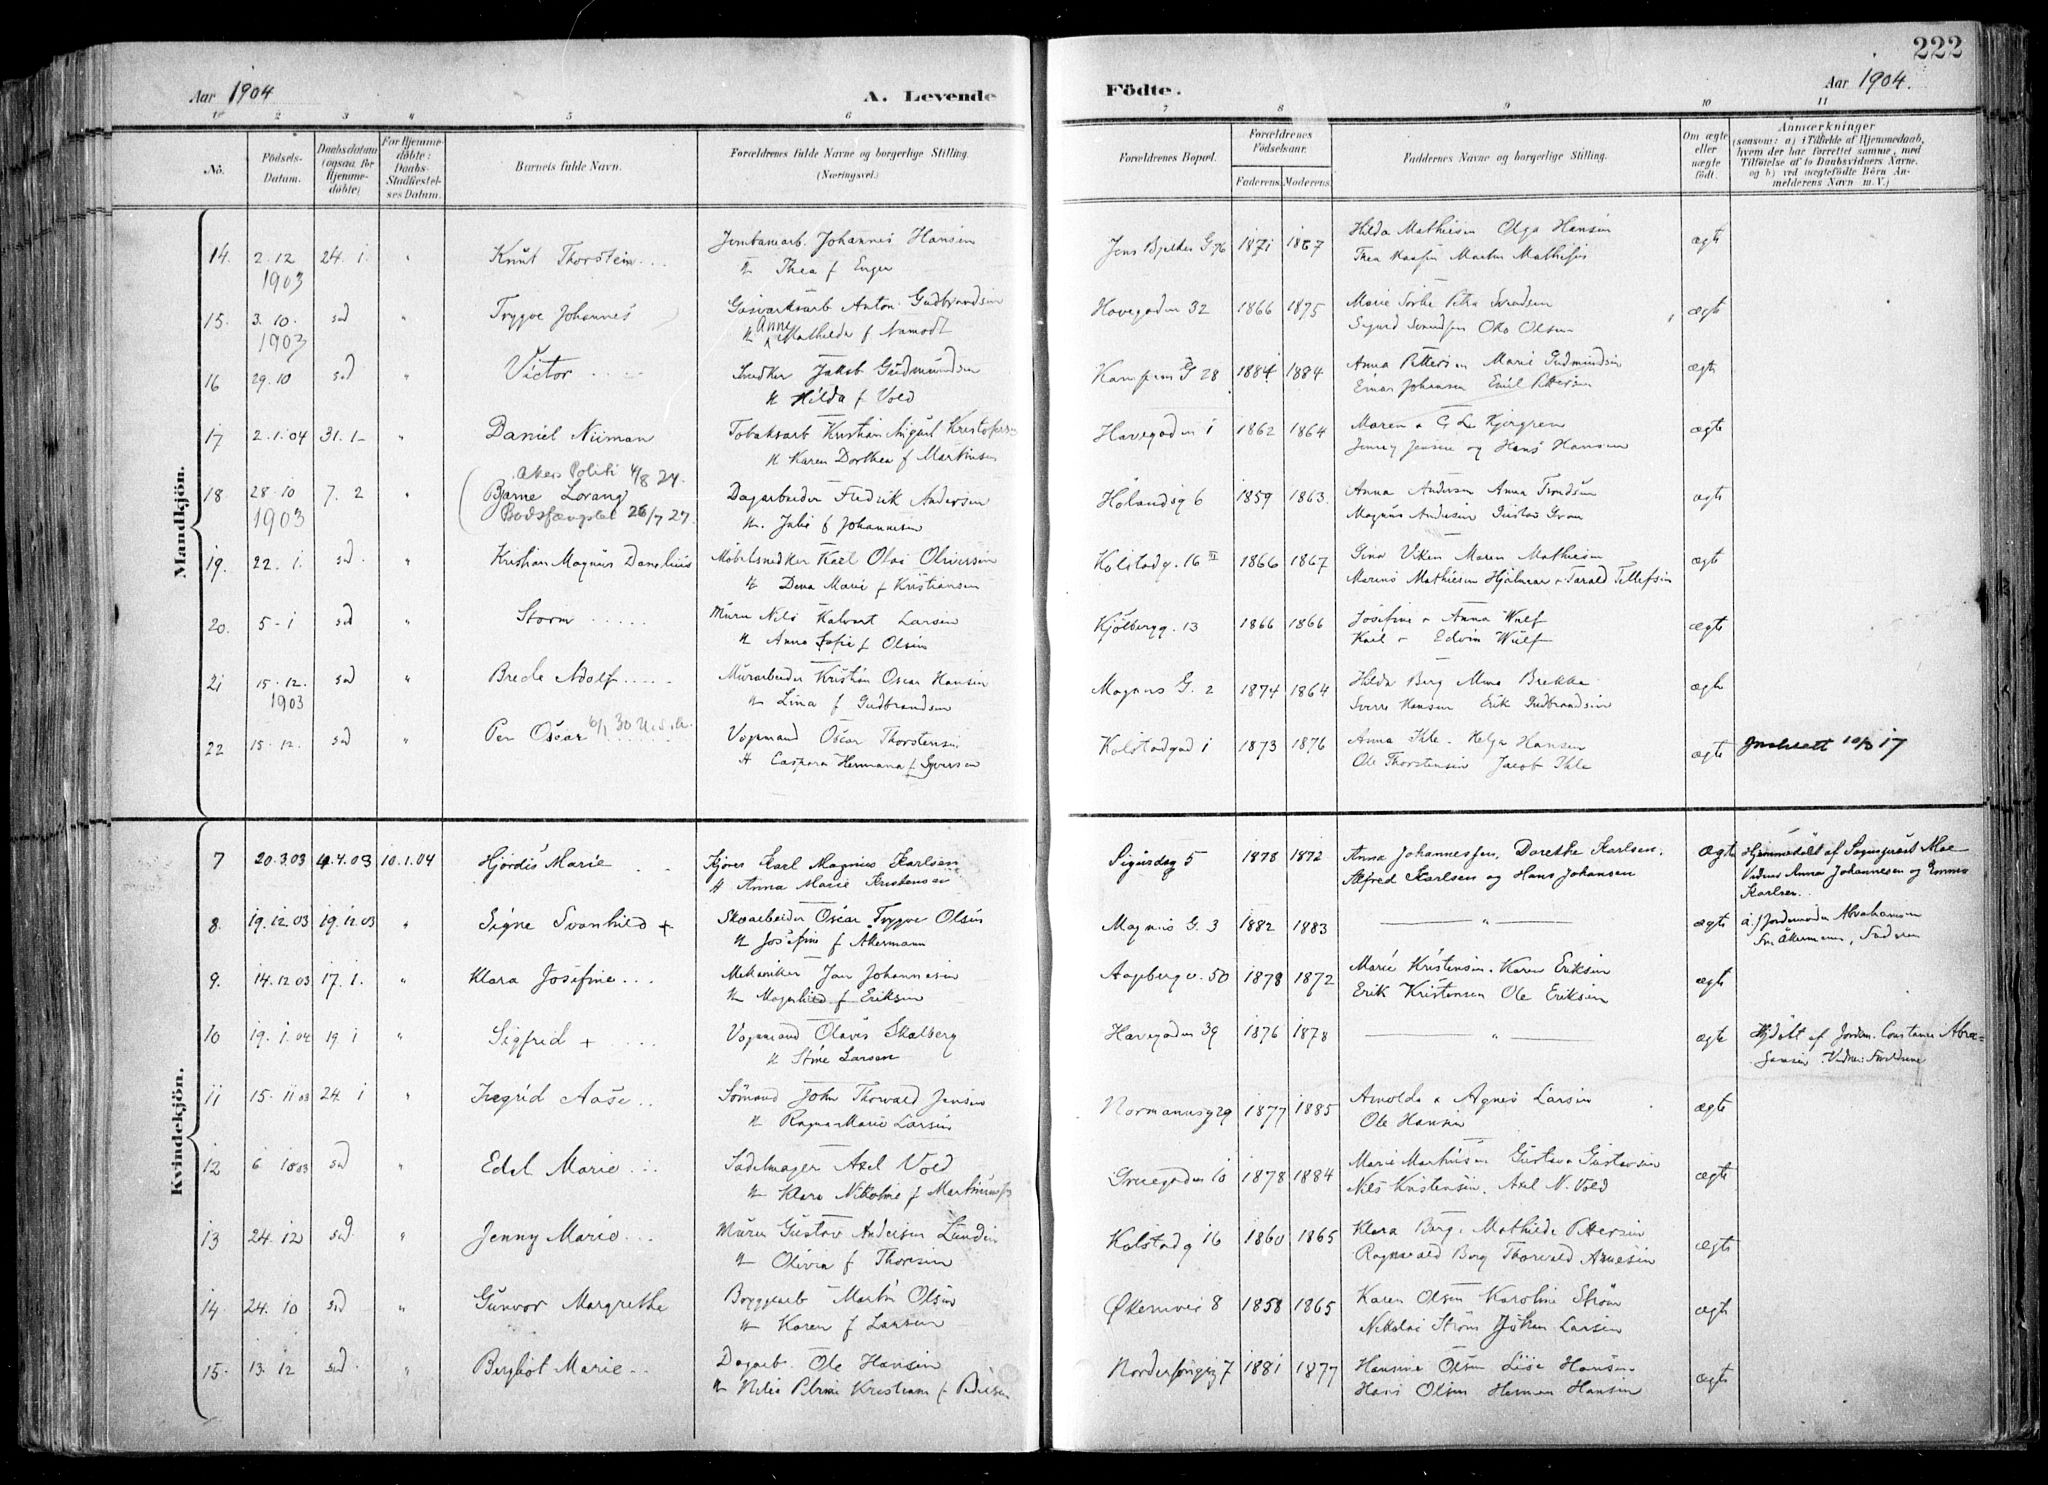 222
Aar 1904
A. Levende
Födte.
Aar 1904.
1 2 3 4 5 6 7 8 9 10 11
No.
Födsels-
Datum.
Daabsdatum
(ogsaa for
Hjemme-
döbte)
For Hjemme-
døbte:
Daabs-
Stadfæstel-
ses Datum.
Barnets fulde Navn.
Forældrenes fulde Navne og borgerlige Stilling.
(Næringsvei.)
Forældrenes Bopæl.
Forældrenes
Födselsaar.
Faderens. Moderens.
Faddernes Navne og borgerlige Stilling.
Om ægte
eller
uægte
födt.
Anmærkninger
(saasom: a) i Tilfælde af Hjemmedaab,
hvem der har forrettet samme, med
Tilföielse af to Daabsvidners Navne.
og b) ved uægtefödte Börn An-
melderens Navn m. V.)
Mandkjön.
14. 2.12 1903 24.1. " Knut Thorstein
Jernbanearb. Johannes Hansen
H Thea f Enger
Jens Bjelkes G 76 1871 1867
Hilda Mathisen Olga Hansen
ægte
15. 3.10. 1903 sad " Trygve Johannes
Gasværksarb Anton Gudbrandsen
H Anne Mathilde f
Havegaden 32 1866 1875
ægte
16 29.10 sad " Victor
Snedker Jakob Gudmundsen
H Hilda f Vold
Kampens G 28 1884 1884
Anna Pettersen Marie Gudmundsen
Einar Johansen Emil Pettersen
ægte
17 2.1.04 31.1 " Daniel Niiman
Tobaksarb Kristian August Kristofersen
H Karen Dorthea f Martinsen
Havegaden 1 1862 1864
Jenny Jensen og Hans Hansen
ægte
Akers Politi 4/8 24.
18 28.10 1903 7.2 " Bjarne Lorang
Bodsfængslet 26/7 27.
Dagarbeider Fredrik Andersen
H. Julie f Johannesen
Hölandsg 6 1859 1863
Anna Andersen Anna
Magnus Andersen Gustav
ægte
19. 22.1. sad. " Kristian Magnus Danelius
Möbelsnedker Karl Olai Oliversen
H Dena Marie f Kristiansen
Kolstadg. 16 II 1866 1867
Gina Viken Maren Mathisen
Marius Mathiesen Hjalmar Tarald Tellefsen
ægte
20. 5-1 sad " Storm
Murer Nils Halvart Larsen
H Anna Sofie f Olsen
Kjölbergg. 13 1866 1866
Josefine + Anna Wulf
Karl + Edvin Wulf
ægte
21 15.12. 1903 sad " Brede Adolf
Murarbeider Kristian Oscar Hansen
H Lina f Gudbrandsen
Magnus G. 2 1874 1864
Hilda Berg Brekke
Sverre Hansen Erik Gudbrandsen
ægte
22 15.12. sad " Per Oscar 6/1 30 U.S.A.
Vognmand Oscar Thorstensen
H Caspara Hermana f Iversen
Kolstadgad 1 1873 1876
Anna Ihle. Helga Hansen
Ole Thorstensen Jacob Ihle
ægte 17
Kvindekjön.
7 20.3.03 4.4.03 10.1.04 Hjördis Marie
Kjörer Karl Magnus Karlsen
H Anna Marie Kristensen
Sigurdsg 5 1878 1872
Anna Johannessen, Dorethe Karlsen.
Alfred Karlsen og Hans Johansen
ægte
Hjemmedöbt af Sogneprest Moe
Vidner Anna Johannesen og Emma
Karlsen.
8. 19.12.03 19.12.03 " Signe Svanhild +
Skoarbeider Oscar Trygve Olsen
H Josefine f Åkermann
Magnus G. 3 1882 1883
"
ægte
a.) Jordemoder Abrahamsen
Fru Åkermann, Faderen
9. 14.12 03 17.1. " Klara Josefine
Mekaniker Jan Johannesen
H Magnhild f Eriksen
Aagebergv. 50 1878 1872
Marie Kristensen. Karen Eriksen
Erik Kristensen Ole Eriksen
ægte
10 19.1.04 19.1 " Sigfrid +
Vognmand Olavis Skalberg
H Stine Larsen
Havegaden 39 1876 1878
"
ægte
Hjdöbt af Jordm. Constance Abra-
hamsen Vidner: Forældrene
11 15.11 03 24.1 " Ingrid Aase
Sömand John Thorvald Jensen
H Ragna Marie Larsen
Normannsg 29 1877 1885
Arnolda + Agnes Larsen
Ole Hansen
ægte
12 6 10 03 sad " Edel Marie
Sadelmager Axel Vold
H Klara Nikoline f
Gruegaden 10 1878 1884
Marie Martinsen Gustava Gustavsen
Nils Kristensen. Axel N. Vold
ægte
13 24.12 sad " Jenny Marie
Murer Gustav Andersen Lundin
H Olivia f Thoresen
Kolstadg 16 1860 1865
Klara Borg. Mathilde Pettersen
Ragnvald Borg Thorvald Arnesen
ægte
14. 24.10 sad " Gunvor Margrethe
Bryggearb Martin Olsen
H Karen f Larsen
Økernvei 8 1858 1865
Karen Olsen Karoline Ström
Nikolai Ström Johan Larsen
ægte
15. 13.12 sad " Bergliot Marie
Dagarb. Ole Hansen
H Kristiane f Pedersen
7 1881 1877
Hansine Olsen Lise Hansen
Hans Olsen Herman Hansen
ægte